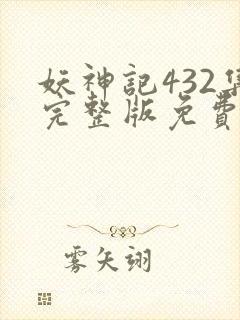 妖神記432集
完整版免費
雾矢翊